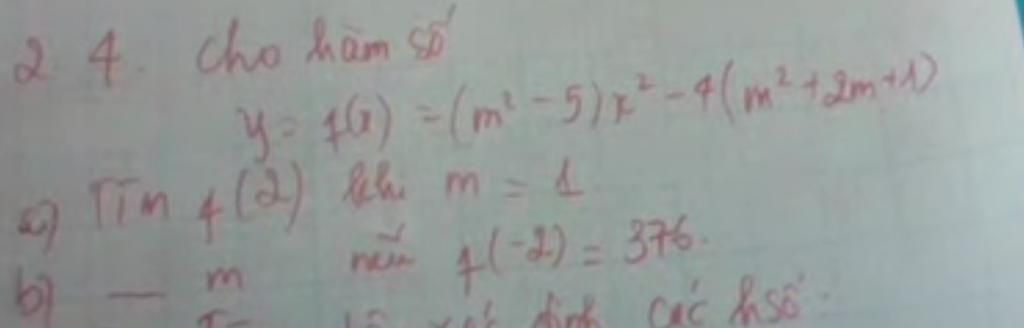 2.4. Cho hàm số
y = f(x) = (m² - 5)x² - 4(m² + 2m + 1)
a) Tìm f(2) khi m = 1
b) — m nếu f(-2) = 376.
định các hsố: